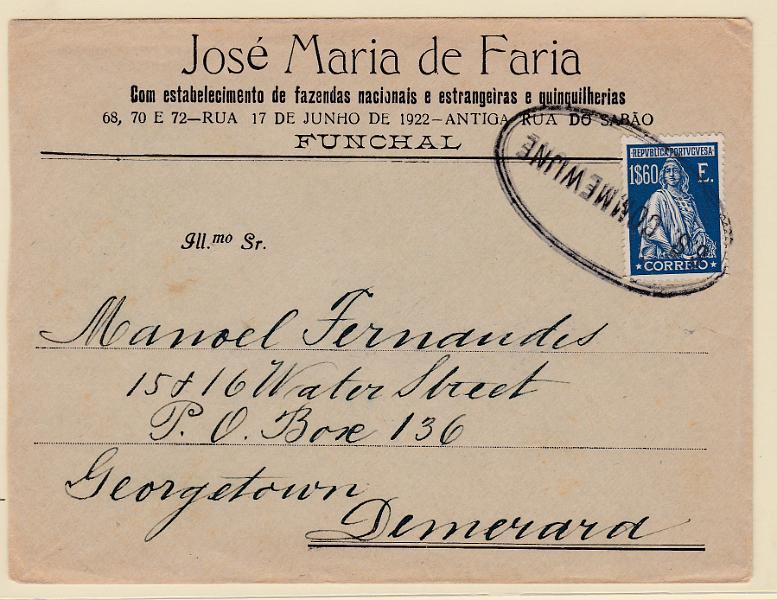 José Maria de Faria
Com estabelecimento de fazendas nacionais e estrangeiras e quinquilherias
68, 70 E 72—RUA 17 DE JUNHO DE 1922—ANTIGA RUA DO SABÃO
FUNCHAL
REPVBLICA PORTVGVESA
1$60 E.
CORREIO
SS COMMEWIJNE
Ill.mo Sr.
Manoel Fernandes
15 & 16 Water Street
P. O. Box 136
Georgetown
Demerara